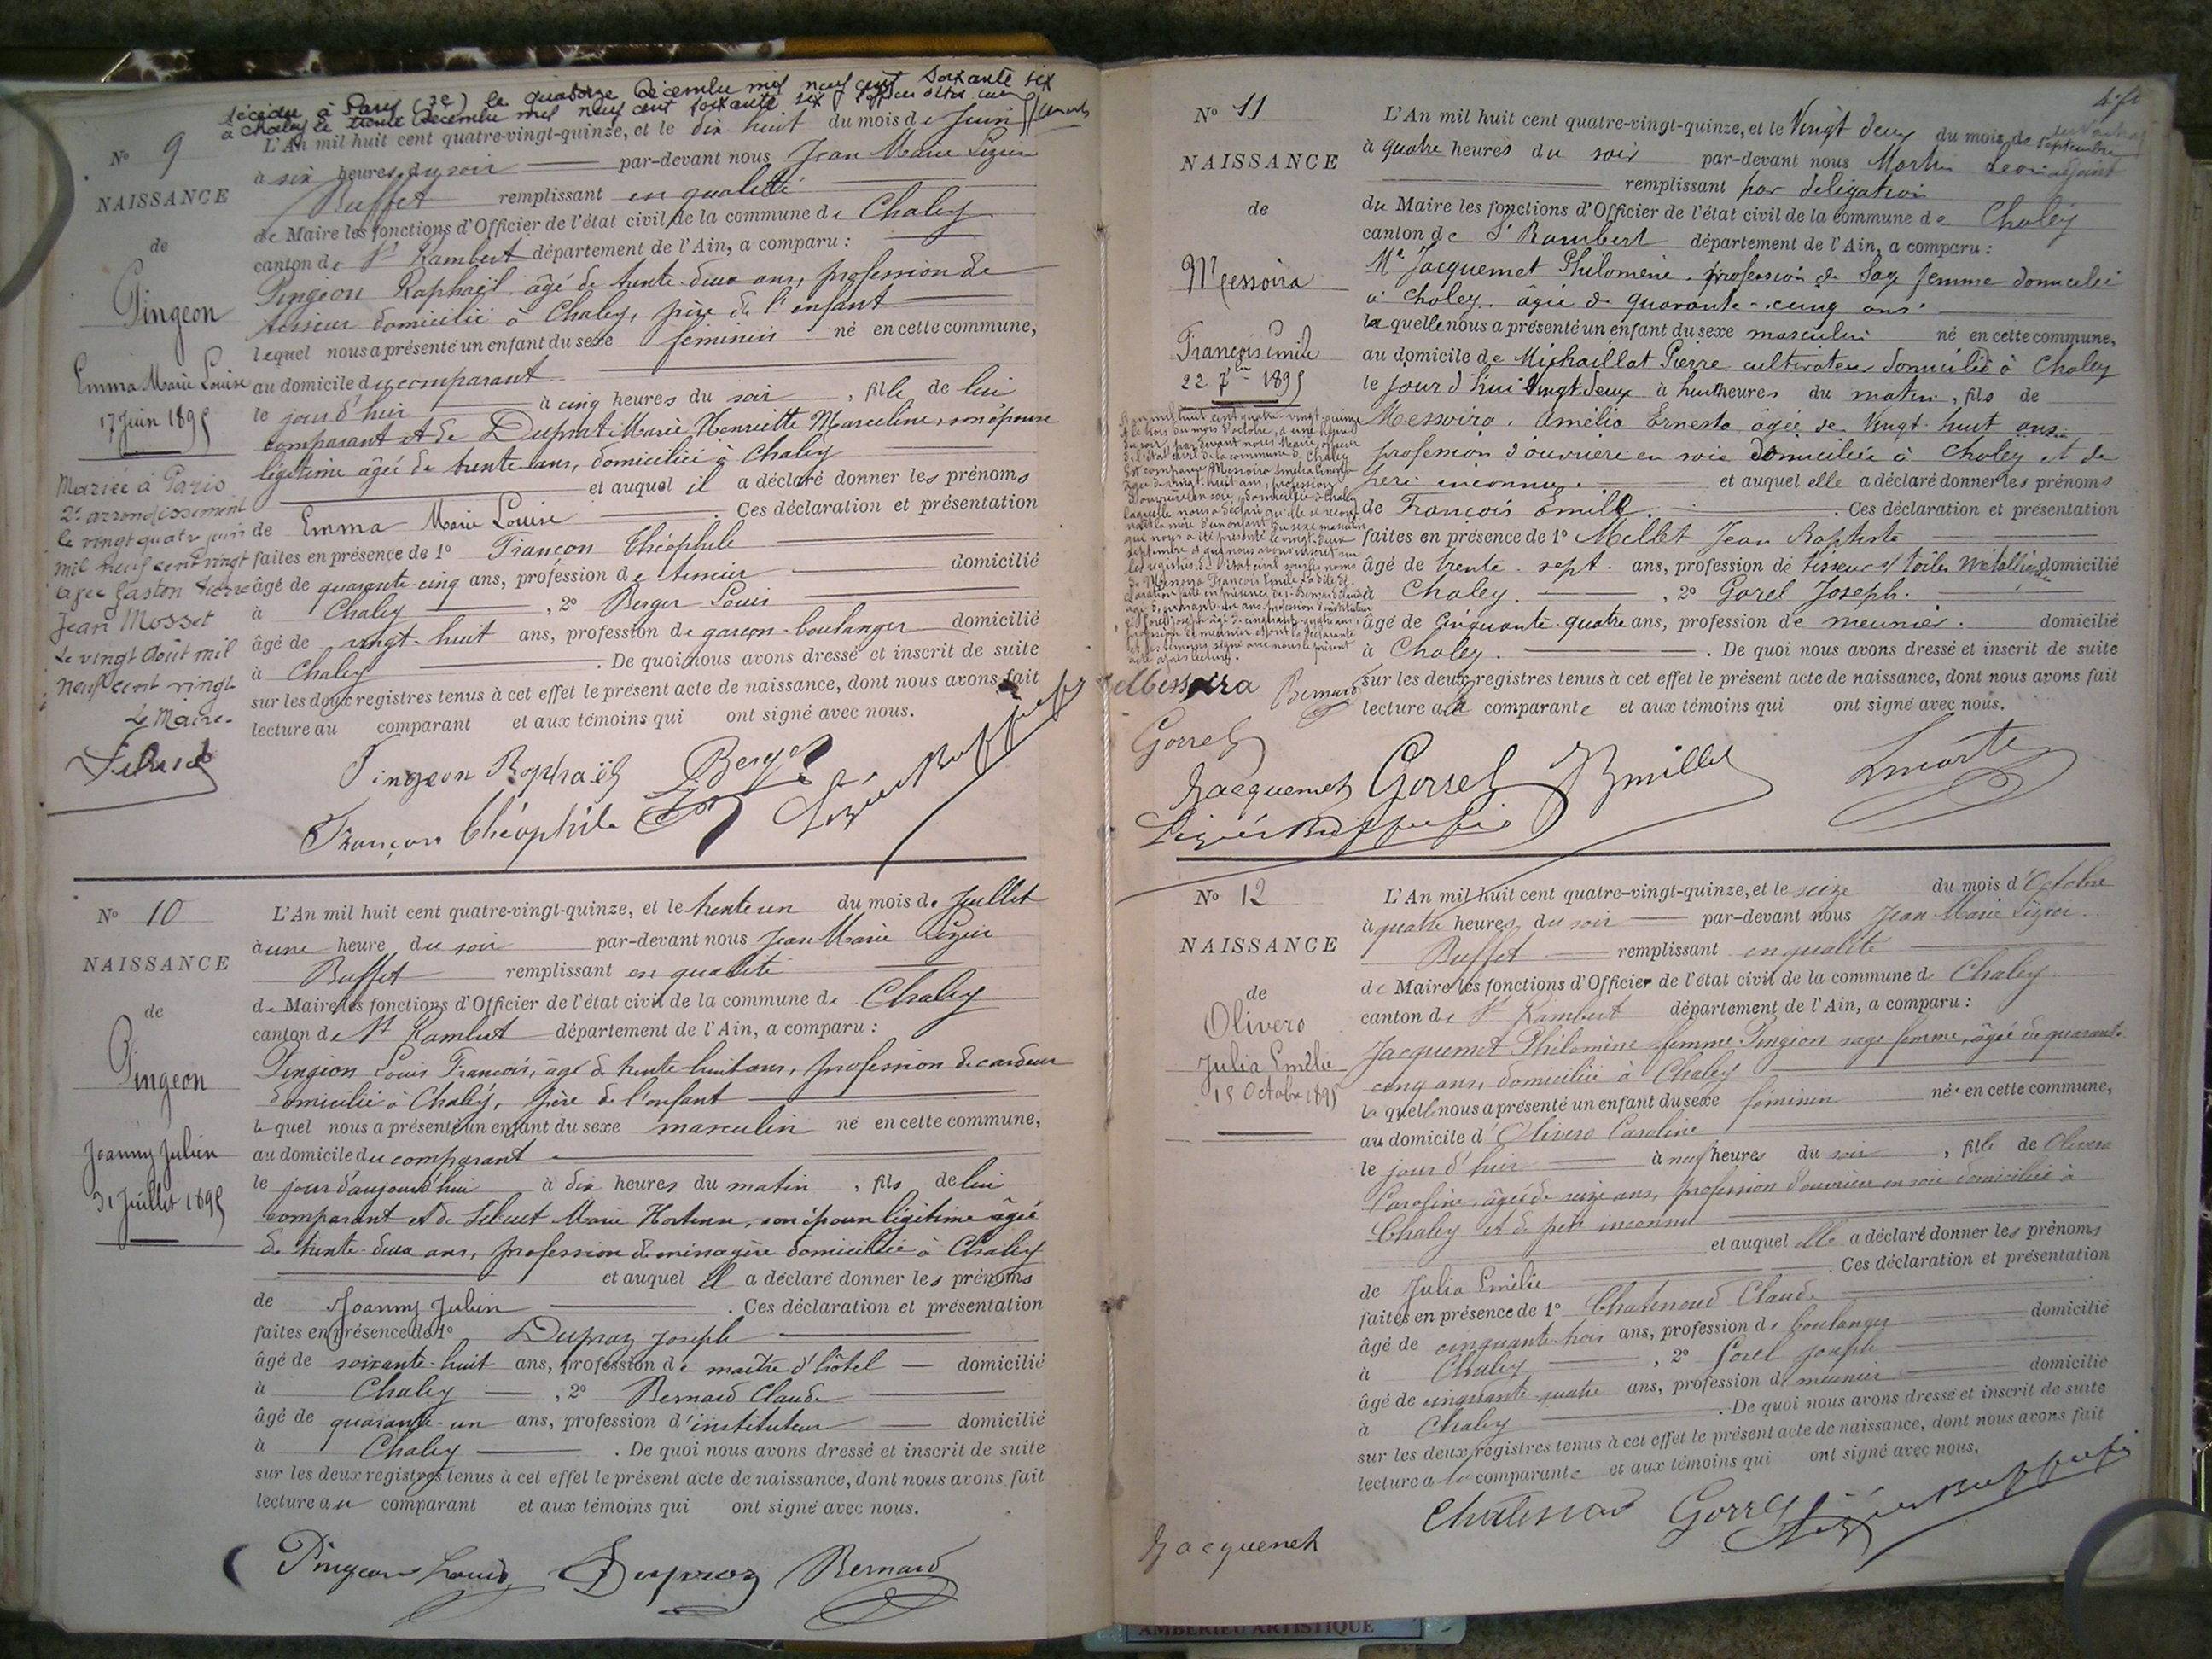 décédée à Paris (2e) le quatorze Décembre mil neuf cent soixante six
à Chaley le trente Décembre mil neuf cent soixante six
No 9
NAISSANCE
de
Pingeon
Emma Marie Louise
17 Juin 1895
Mariée à Paris
2e arrondissement
le vingt quatre juin
mil neuf cent vingt
avec Gaston Pierre
Jean Mosset
Le vingt Août mil
neuf cent vingt
Le Maire
L'An mil huit cent quatre-vingt-quinze, et le dix huit du mois de Juin
à six heures du soir par-devant nous Jean Marie Lizier
Buffet remplissant en qualité
de Maire les fonctions d'Officier de l'état civil de la commune de Chaley
canton de St Rambert département de l'Ain, a comparu :
Pingeon Raphaël âgé de trente-deux ans, profession de
tisseur domicilié à Chaley, père de l'enfant
lequel nous a présenté un enfant du sexe féminin né en cette commune,
au domicile du comparant
le jour d'hier à cinq heures du soir, fille de lui
comparant et de Duprat Marie Henriette Marceline, son épouse
légitime âgée de trente ans, domiciliée à Chaley
et auquel il a déclaré donner les prénoms
de Emma Marie Louise. Ces déclaration et présentation
faites en présence de 1o Françon Théophile
âgé de quarante-cinq ans, profession de tisseur domicilié
à Chaley, 2o Berger Louis
âgé de vingt-huit ans, profession de garçon-boulanger domicilié
à Chaley. De quoi nous avons dressé et inscrit de suite
sur les deux registres tenus à cet effet le présent acte de naissance, dont nous avons fait
lecture au comparant et aux témoins qui ont signé avec nous.
Pingeon Raphaël Berger
Françon Théophile Lizier Buffet
No 10
NAISSANCE
de
Pingeon
Joanny Julien
31 Juillet 1895
L'An mil huit cent quatre-vingt-quinze, et le trente un du mois de Juillet
à une heure du soir par-devant nous Jean Marie Lizier
Buffet remplissant en qualité
de Maire les fonctions d'Officier de l'état civil de la commune de Chaley
canton de St Rambert département de l'Ain, a comparu :
Pingeon Louis François, âgé de trente-huit ans, profession de cardeur
domicilié à Chaley, père de l'enfant
lequel nous a présenté un enfant du sexe masculin né en cette commune,
au domicile du comparant
le jour d'aujourd'hui à dix heures du matin, fils de lui
comparant et de Marie Hortense, son épouse légitime âgée
de trente-deux ans, profession de ménagère domiciliée à Chaley
et auquel il a déclaré donner les prénoms
de Joanny Julien. Ces déclaration et présentation
faites en présence de 1o Dupraz Joseph
âgé de soixante-huit ans, profession de maître d'hôtel domicilié
à Chaley, 2o Bernard Claude
âgé de quarante-un ans, profession d'instituteur domicilié
à Chaley. De quoi nous avons dressé et inscrit de suite
sur les deux registres tenus à cet effet le présent acte de naissance, dont nous avons fait
lecture au comparant et aux témoins qui ont signé avec nous.
Pingeon Louis Dupraz Bernard
No 11
NAISSANCE
de
Messoira
François Emile
22 7bre 1895
L'an mil huit cent quatre-vingt-quinze
et le trois du mois d'octobre, à une heure
du soir, par devant nous Maire, officier
de l'état civil de la commune de Chaley
est comparue Messoira Amélia Ernesta
âgée de vingt-huit ans, profession
d'ouvrière en soie, domiciliée à Chaley
laquelle nous a déclaré qu'elle se recon
naît la mère d'un enfant du sexe masculin
qui nous a été présenté le vingt-deux
septembre et que nous avons inscrit sur
les registres de l'état civil sous les noms
de Messoira François Emile. La dite dé
claration faite en présence de Bernard Claude
âgé de quarante-un ans, profession d'instituteur
et Gorel Joseph âgé de cinquante-quatre ans,
profession de meunier et ont la déclarante
et les témoins signé avec nous le présent
acte après lecture.
Messoira Bernard
Gorrel
L'An mil huit cent quatre-vingt-quinze, et le Vingt deux du mois de Septembre
à quatre heures du soir par-devant nous Martin Léon adjoint
remplissant par délégation
du Maire les fonctions d'Officier de l'état civil de la commune de Chaley
canton de St Rambert département de l'Ain, a comparu :
Me Jacquemet Philomène, profession de Sage femme domiciliée
à Chaley, âgée de quarante-cinq ans
laquelle nous a présenté un enfant du sexe masculin né en cette commune,
au domicile de Michaillat Pierre cultivateur domicilié à Chaley
le jour d'hui Vingt-deux à huit heures du matin, fils de
Messoira, Amélia Ernesta âgée de Vingt-huit ans
profession d'ouvrière en soie domiciliée à Chaley et de
père inconnu. et auquel elle a déclaré donner les prénoms
de François Emile. Ces déclaration et présentation
faites en présence de 1o Millet Jean Baptiste
âgé de trente-sept ans, profession de tisseur de toiles métalliques domicilié
à Chaley, 2o Gorel Joseph
âgé de Cinquante-quatre ans, profession de meunier domicilié
à Chaley. De quoi nous avons dressé et inscrit de suite
sur les deux registres tenus à cet effet le présent acte de naissance, dont nous avons fait
lecture à la comparante et aux témoins qui ont signé avec nous.
Jacquemet Gorrel B millet L martin
Lizier Buffet
No 12
NAISSANCE
de
Olivero
Julia Emélie
15 Octobre 1895
L'An mil huit cent quatre-vingt-quinze, et le seize du mois d'Octobre
à quatre heures du soir par-devant nous Jean Marie Lizier
Buffet remplissant en qualité
de Maire les fonctions d'Officier de l'état civil de la commune de Chaley
canton de St Rambert département de l'Ain, a comparu :
Jacquemet Philomène femme Pingeon sage femme, âgée de quarante-
cinq ans, domiciliée à Chaley
laquelle nous a présenté un enfant du sexe féminin née en cette commune,
au domicile d'Olivero Caroline
le jour d'hier à neuf heures du soir, fille de Olivero
Caroline, âgée de seize ans, profession d'ouvrière en soie domiciliée à
Chaley et de père inconnu
et auquel elle a déclaré donner les prénoms
de Julia Emélie. Ces déclaration et présentation
faites en présence de 1o Chatenoud Claude
âgé de cinquante-trois ans, profession de boulanger domicilié
à Chaley, 2o Gorel Joseph
âgé de cinquante-quatre ans, profession de meunier domicilié
à Chaley. De quoi nous avons dressé et inscrit de suite
sur les deux registres tenus à cet effet le présent acte de naissance, dont nous avons fait
lecture à la comparante et aux témoins qui ont signé avec nous.
Chatenoud Gorrel Lizier Buffet
Jacquemet
AMBERIEU ARTISTIQUE